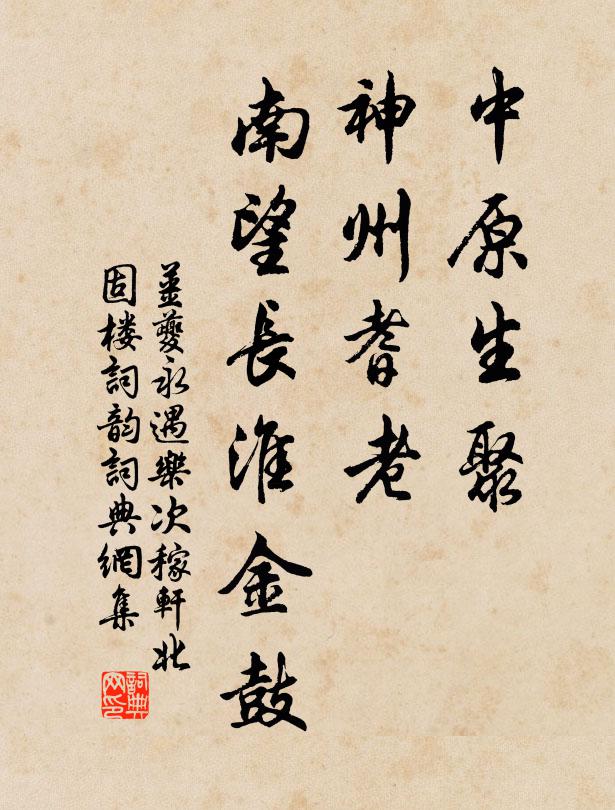 中原生聚
神州耆老
南望長淮金鼓
姜夔永遇樂次稼軒北
固楼詞韵詞典網集
詞典
网印